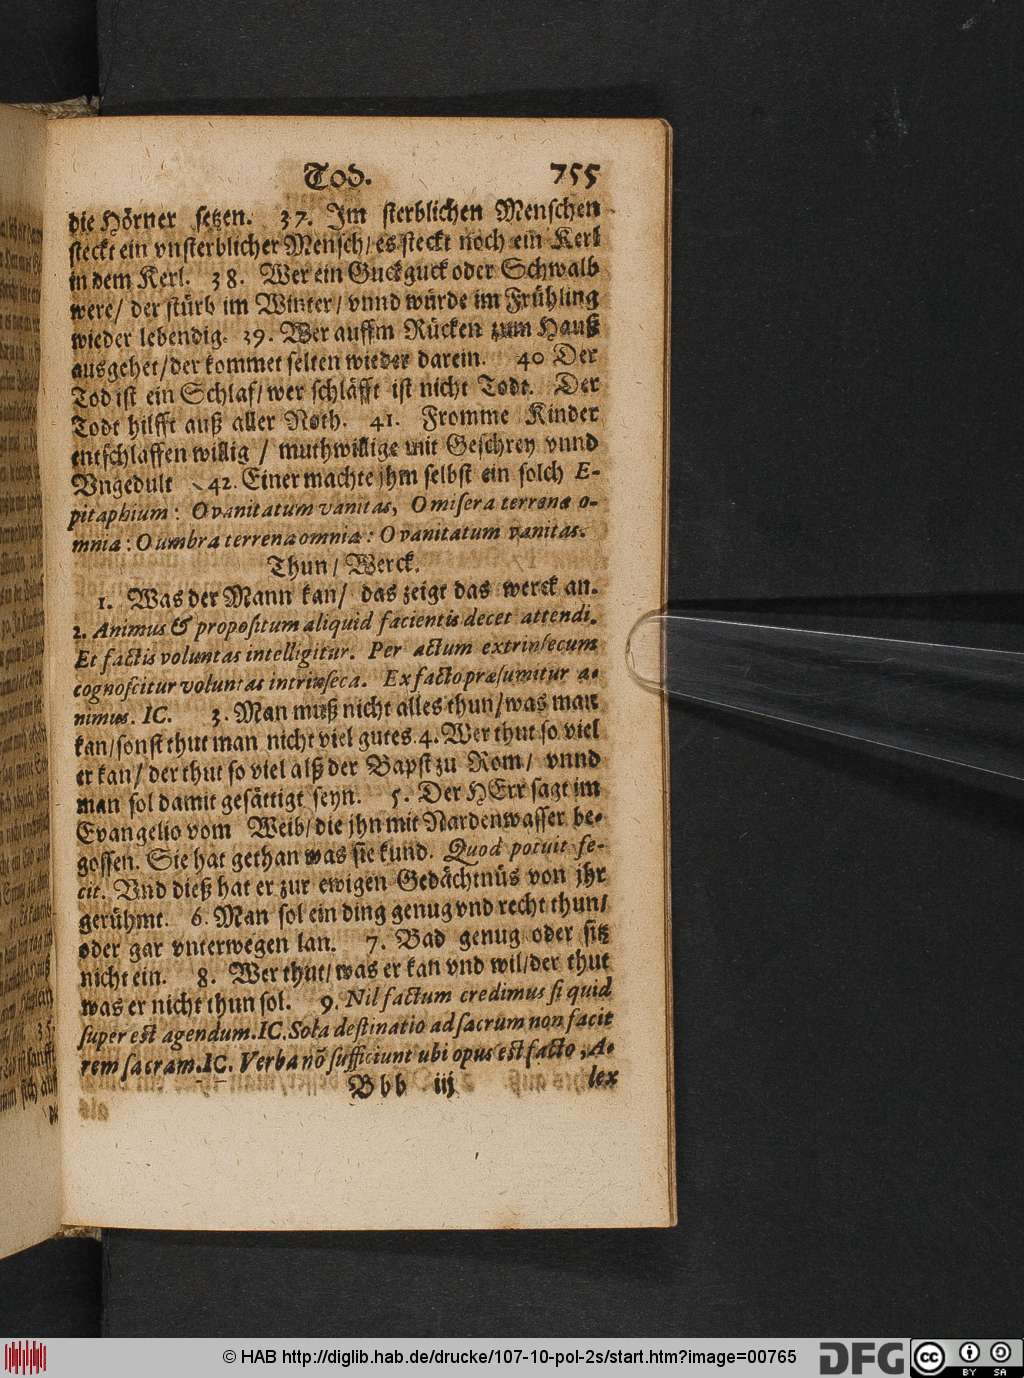 Tod. 755
die Hörner setzen. 37. Im sterblichen Menschen
steckt ein vnsterblicher Mensch/ es steckt noch ein Kerl
in dem Kerl. 38. Wer ein Guckguck oder Schwalb
were/ der stürb im Winter/ vnnd würde im Frühling
wieder lebendig. 39. Wer auffm Rücken zum Hauß
ausgehet/ der kommet selten wieder darein. 40 Der
Tod ist ein Schlaf/ wer schläfft ist nicht Todt. Der
Todt hilfft auß aller Noth. 41. Fromme Kinder
entschlaffen willig / muthwillige mit Geschrey vnnd
Vngedult 42. Einer machte jhm selbst ein solch E-
pitaphium: O vanitatum vanitas, O misera terrena o-
mnia: O umbra terrena omnia: O vanitatum vanitas.
Thun/ Werck.
1. Was der Mann kan/ das zeigt das werck an.
2. Animus & propositum aliquid facientis decet attendi.
Et factis voluntas intelligitur. Per actum extrinsecum
cognoscitur voluntas intrinseca. Ex facto præsumitur a-
nimus. IC. 3. Man muß nicht alles thun/ was man
kan/ sonst thut man nicht viel gutes. 4. Wer thut so viel
er kan/ der thut so viel alß der Bapst zu Rom/ vnnd
man sol damit gesättigt seyn. 5. Der HErr sagt im
Evangelio vom Weib/ die jhn mit Nardenwasser be-
gossen. Sie hat gethan was sie kund. Quod potuit fe-
cit. Vnd dieß hat er zur ewigen Gedächtnüs von jhr
gerühmt. 6. Man sol ein ding genug vnd recht thun/
oder gar vnterwegen lan. 7. Bad genug oder sitz
nicht ein. 8. Wer thut/ was er kan vnd wil/ der thut
was er nicht thun sol. 9. Nil factum credimus si quid
super est agendum. IC. Sola destinatio ad sacrum non facit
rem sacram. IC. Verba nõ sufficiunt ubi opus est facto, A-
Bbb iij lex
© HAB http://diglib.hab.de/drucke/107-10-pol-2s/start.htm?image=00765
DFG
cc BY SA